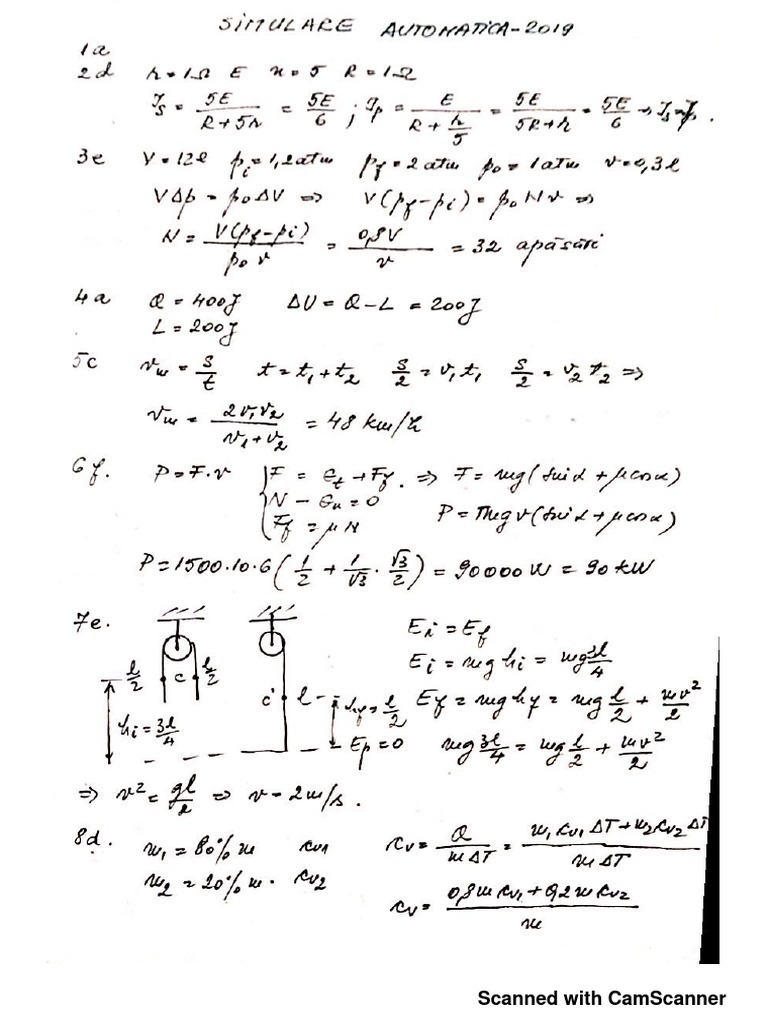 SIMULARE AUTOMATICA-2019
1a
2d r=1Ω E n=5 R=1Ω
I_s = 5E/(R+5r) = 5E/6 ; I_p = E/(R+r/5) = 5E/(5R+r) = 5E/6 → I_s=I_p.
3e V=12l p_i=1,2atm p_f=2atm p_0=1atm v=0,3l
VΔp = p_0ΔV ⇒ V(p_f-p_i)=p_0Nv ⇒
N = V(p_f-p_i)/(p_0 v) = 0,8V/v = 32 apăsări
4a Q = 400J ΔU = Q-L = 200J
L = 200J
5c v_m = s/t t=t_1+t_2 s/2 = v_1t_1 s/2 = v_2t_2 ⇒
v_m = 2v_1v_2/(v_1+v_2) = 48 km/h
6f. P=F·v { F = G_t+F_f. ⇒ F=mg(sinα+μcosα)
N-G_n=0 P=mgv(sinα+μcosα)
F_f=μN
P=1500·10·6(1/2 + 1/√3·√3/2) = 90000W = 90kW
7e. E_i=E_f
E_i=mgh_i=mg3l/4
l/2 c l/2 c' l h_f=l/2 E_f=mgh_f=mg l/2 + mv²/2
h_i=3l/4 E_p=0 mg3l/4=mg l/2+mv²/2
⇒ v²=gl/2 ⇒ v=2m/s.
8d. m_1=80%m c_v1 c_v = Q/(mΔT) = (m_1c_v1ΔT+m_2c_v2ΔT)/(mΔT)
m_2=20%m. c_v2 c_v = (0,8mc_v1+0,2mc_v2)/m
Scanned with CamScanner